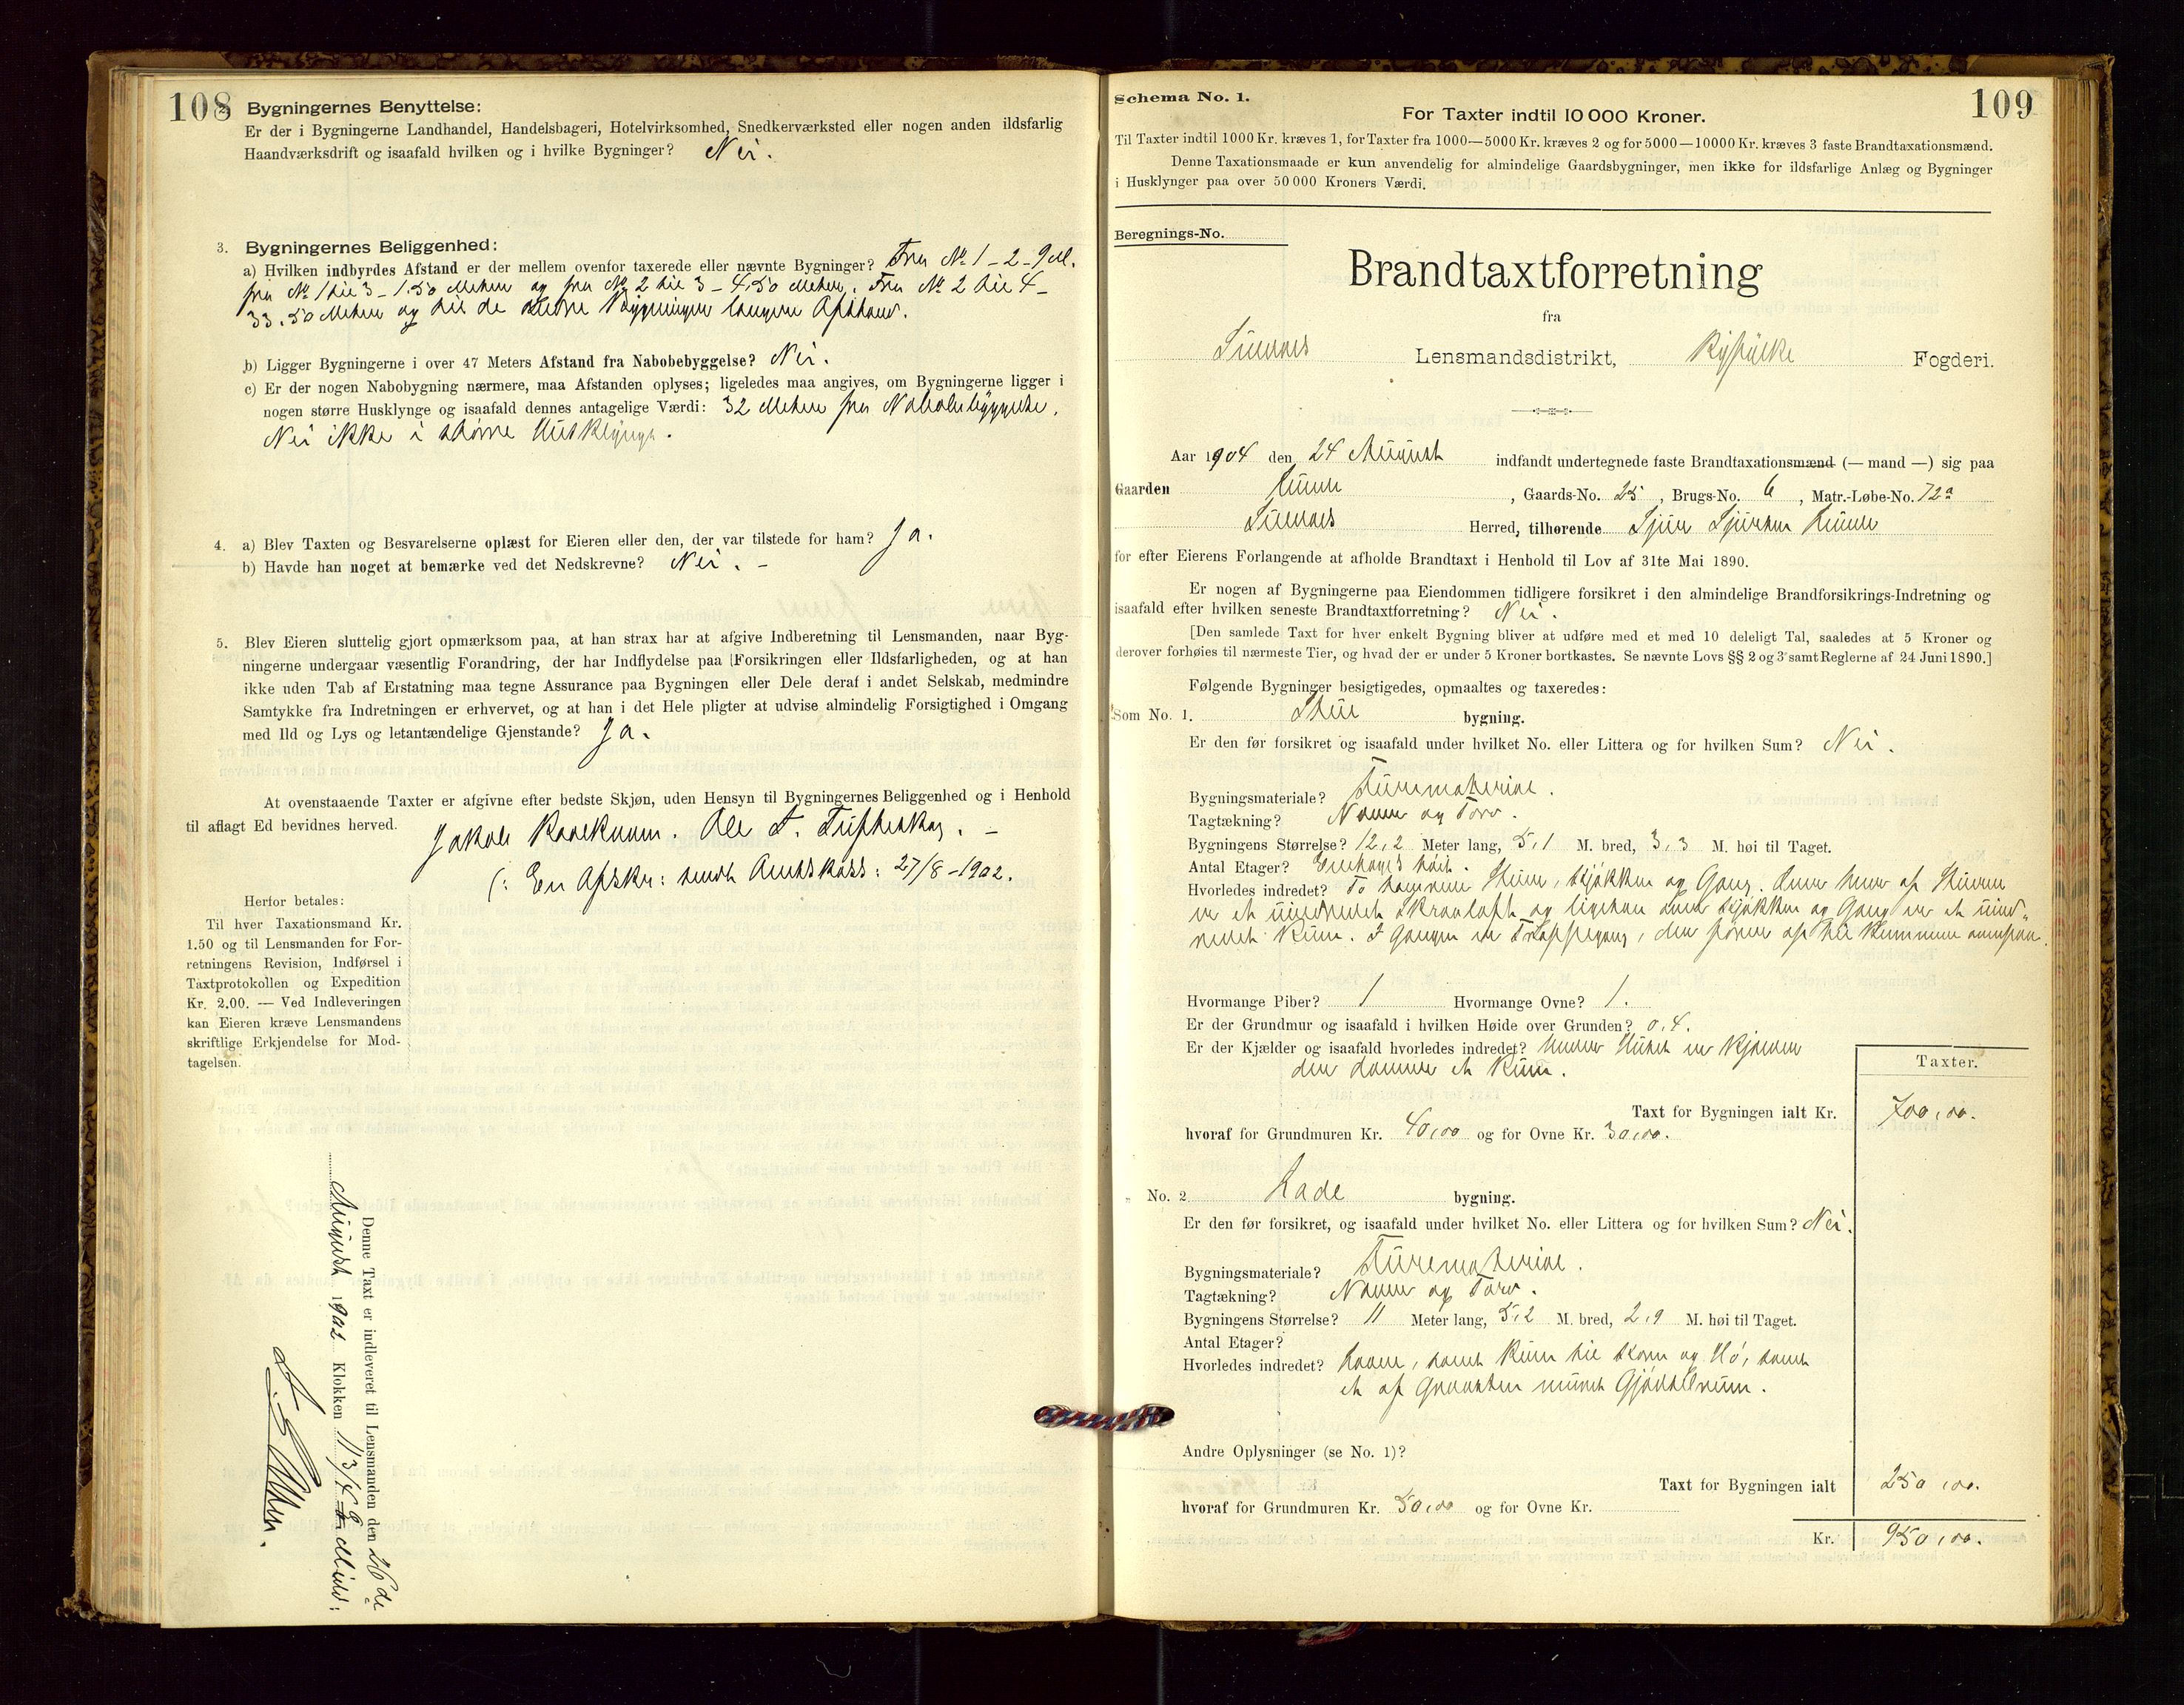 108
2. Bygningernes Benyttelse:
Er der i Bygningerne Landhandel, Handelsbageri, Hotelvirksomhed, Snedkerværksted eller nogen anden ildsfarlig
Haandværksdrift og isaafald hvilken og i hvilke Bygninger? Nei.
3. Bygningernes Beliggenhed:
a) Hvilken indbyrdes Afstand er der mellem ovenfor taxerede eller nævnte Bygninger? Fra No 1 - 2 - 9 M.
fra No 1 til 3 - 1.50 Meter og fra No 2 til 3 - 4,50 Meter. Fra No 2 til 4 -
33.50 Meter og til de andre Bygninger længere Afstand.
b) Ligger Bygningerne i over 47 Meters Afstand fra Nabobebyggelse? Nei.
c) Er der nogen Nabobygning nærmere, maa Afstanden oplyses; ligeledes maa angives, om Bygningerne ligger i
nogen større Husklynge og isaafald dennes antagelige Værdi: 32 Meter fra Nabobebyggelse.
Nei ikke i større Husklynge.
4. a) Blev Taxten og Besvarelserne oplæst for Eieren eller den, der var tilstede for ham? Ja.
b) Havde han noget at bemærke ved det Nedskrevne? Nei. -
5. Blev Eieren sluttelig gjort opmærksom paa, at han strax har at afgive Indberetning til Lensmanden, naar Byg-
ningerne undergaar væsentlig Forandring, der har Indflydelse paa Forsikringen eller Ildsfarligheden, og at han
ikke uden Tab af Erstatning maa tegne Assurance paa Bygningen eller Dele deraf i andet Selskab, medmindre
Samtykke fra Indretningen er erhvervet, og at han i det Hele pligter at udvise almindelig Forsigtighed i Omgang
med Ild og Lys og letantændelige Gjenstande? Ja.
At ovenstaaende Taxter er afgivne efter bedste Skjøn, uden Hensyn til Bygningernes Beliggenhed og i Henhold
til aflagt Ed bevidnes herved.
Jakob Ole T.
(: En Afskr: sendt Amtskass: 27/8 - 1902.
Herfor betales:
Til hver Taxationsmand Kr.
1.50 og til Lensmanden for For-
retningens Revision, Indførsel i
Taxtprotokollen og Expedition
Kr. 2.00. — Ved Indleveringen
kan Eieren kræve Lensmandens
skriftlige Erkjendelse for Mod-
tagelsen.
Denne Taxt er indleveret til Lensmanden den 26de
August 1902 Klokken
109
Schema No. 1.
For Taxter indtil 10 000 Kroner.
Til Taxter indtil 1000 Kr. kræves 1, for Taxter fra 1000—5000 Kr. kræves 2 og for 5000—10000 Kr. kræves 3 faste Brandtaxationsmænd.
Denne Taxationsmaade er kun anvendelig for almindelige Gaardsbygninger, men ikke for ildsfarlige Anlæg og Bygninger
i Husklynger paa over 50 000 Kroners Værdi.
Beregnings-No.
Brandtaxtforretning
fra
Lensmandsdistrikt, Ryfylke Fogderi.
Aar 1904 den 24 August indfandt undertegnede faste Brandtaxationsmænd (— mand —) sig paa
Gaarden , Gaards-No. 25, Brugs-No. 6, Matr.-Løbe-No. 72a
Herred, tilhørende Sjur Sjursen
for efter Eierens Forlangende at afholde Brandtaxt i Henhold til Lov af 31te Mai 1890.
Er nogen af Bygningerne paa Eiendommen tidligere forsikret i den almindelige Brandforsikrings-Indretning og
isaafald efter hvilken seneste Brandtaxtforretning? Nei.
[Den samlede Taxt for hver enkelt Bygning bliver at udføre med et med 10 deleligt Tal, saaledes at 5 Kroner og
derover forhøies til nærmeste Tier, og hvad der er under 5 Kroner bortkastes. Se nævnte Lovs §§ 2 og 3 samt Reglerne af 24 Juni 1890.]
Følgende Bygninger besigtigedes, opmaaltes og taxeredes:
Som No. 1. Stue bygning.
Er den før forsikret og isaafald under hvilket No. eller Littera og for hvilken Sum? Nei.
Bygningsmateriale? Furemateriale.
Tagtækning? Næver og Torv.
Bygningens Størrelse? 12,2 Meter lang, 5,1 M. bred, 3,3 M. høi til Taget.
Antal Etager? Enetages høit.
Hvorledes indredet? To Stuer, Kjøkken og Gang. Over af Stuerne
er et uindredet Skraaloft og ligesaa over Kjøkken og Gang er et uind-
redet Rum. I Gangen er Trappegang, der fører op til Rummene ovenpaa.
Hvormange Piber? 1 Hvormange Ovne? 1.
Er der Grundmur og isaafald i hvilken Høide over Grunden? 0,4.
Er der Kjælder og isaafald hvorledes indredet? Under Huset er Kjælder
der danner et Rum.
Taxter.
Taxt for Bygningen ialt Kr. 700,00.
hvoraf for Grundmuren Kr. 40,00 og for Ovne Kr. 30,00.
„ No. 2 Lade bygning.
Er den før forsikret, og isaafald under hvilket No. eller Littera og for hvilken Sum? Nei.
Bygningsmateriale? Furemateriale.
Tagtækning? Næver og Torv.
Bygningens Størrelse? 11 Meter lang, 5,2 M. bred, 2,9 M. høi til Taget.
Antal Etager?
Hvorledes indredet? Laave, samt Rum til Korn og Hø, samt
et af Graasten muret Gjødselrum.
Andre Oplysninger (se No. 1)?
Taxt for Bygningen ialt 250,00.
hvoraf for Grundmuren Kr. 50,00 og for Ovne Kr.
Kr. 950,00.